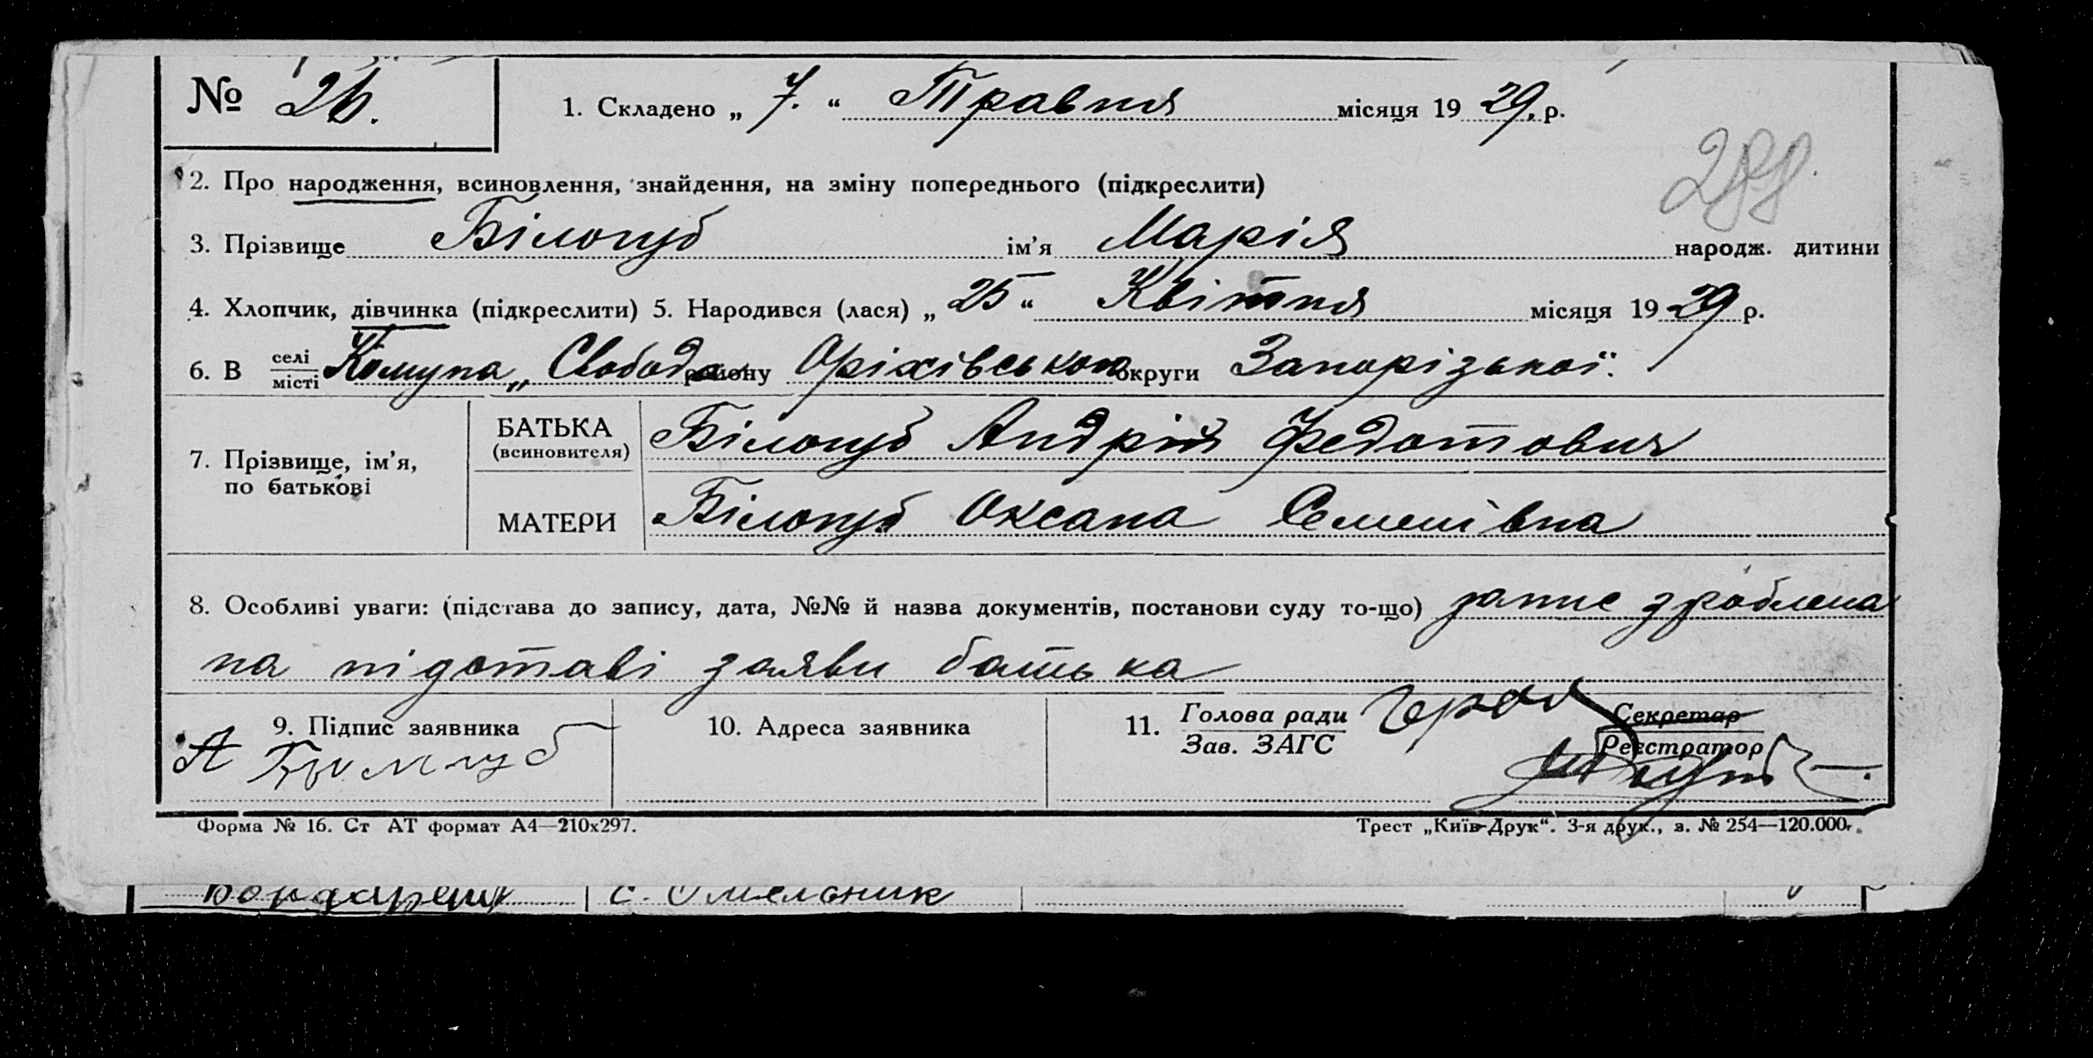 № 26.
1. Складено „ 7. “ Травня місяця 19 29, р.
2. Про народження, всиновлення, знайдення, на зміну попереднього (підкреслити)
3. Прізвище Білогуб ім’я Марія народж. дитини
4. Хлопчик, дівчинка (підкреслити) 5. Народився (лася) „ 25 “ Квітня місяця 19 29 р.
6. В селі/місті Комуна „Свобода" району Оріхівського округи Запорізької.
7. Прізвище, ім’я, по батькові
БАТЬКА (всиновителя) Білогуб Андрій Федотович
МАТЕРИ Білогуб Оксана Семенівна
8. Особливі уваги: (підстава до запису, дата, №№ й назва документів, постанови суду то-що) запис зроблена
на підставі заяви батька
9. Підпис заявника
10. Адреса заявника
11. Голова ради / Зав. ЗАГС
Секретар / Реєстратор
А Билогуб
Форма № 16. Ст АТ формат А4—210х297.
Трест „Київ-Друк“. 3-я друк., з. № 254—120.000.
с. Омельник